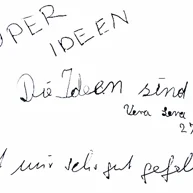 UPER
IDEEN
Die Ideen sind
Vera Lena
mir sehr gut gefal